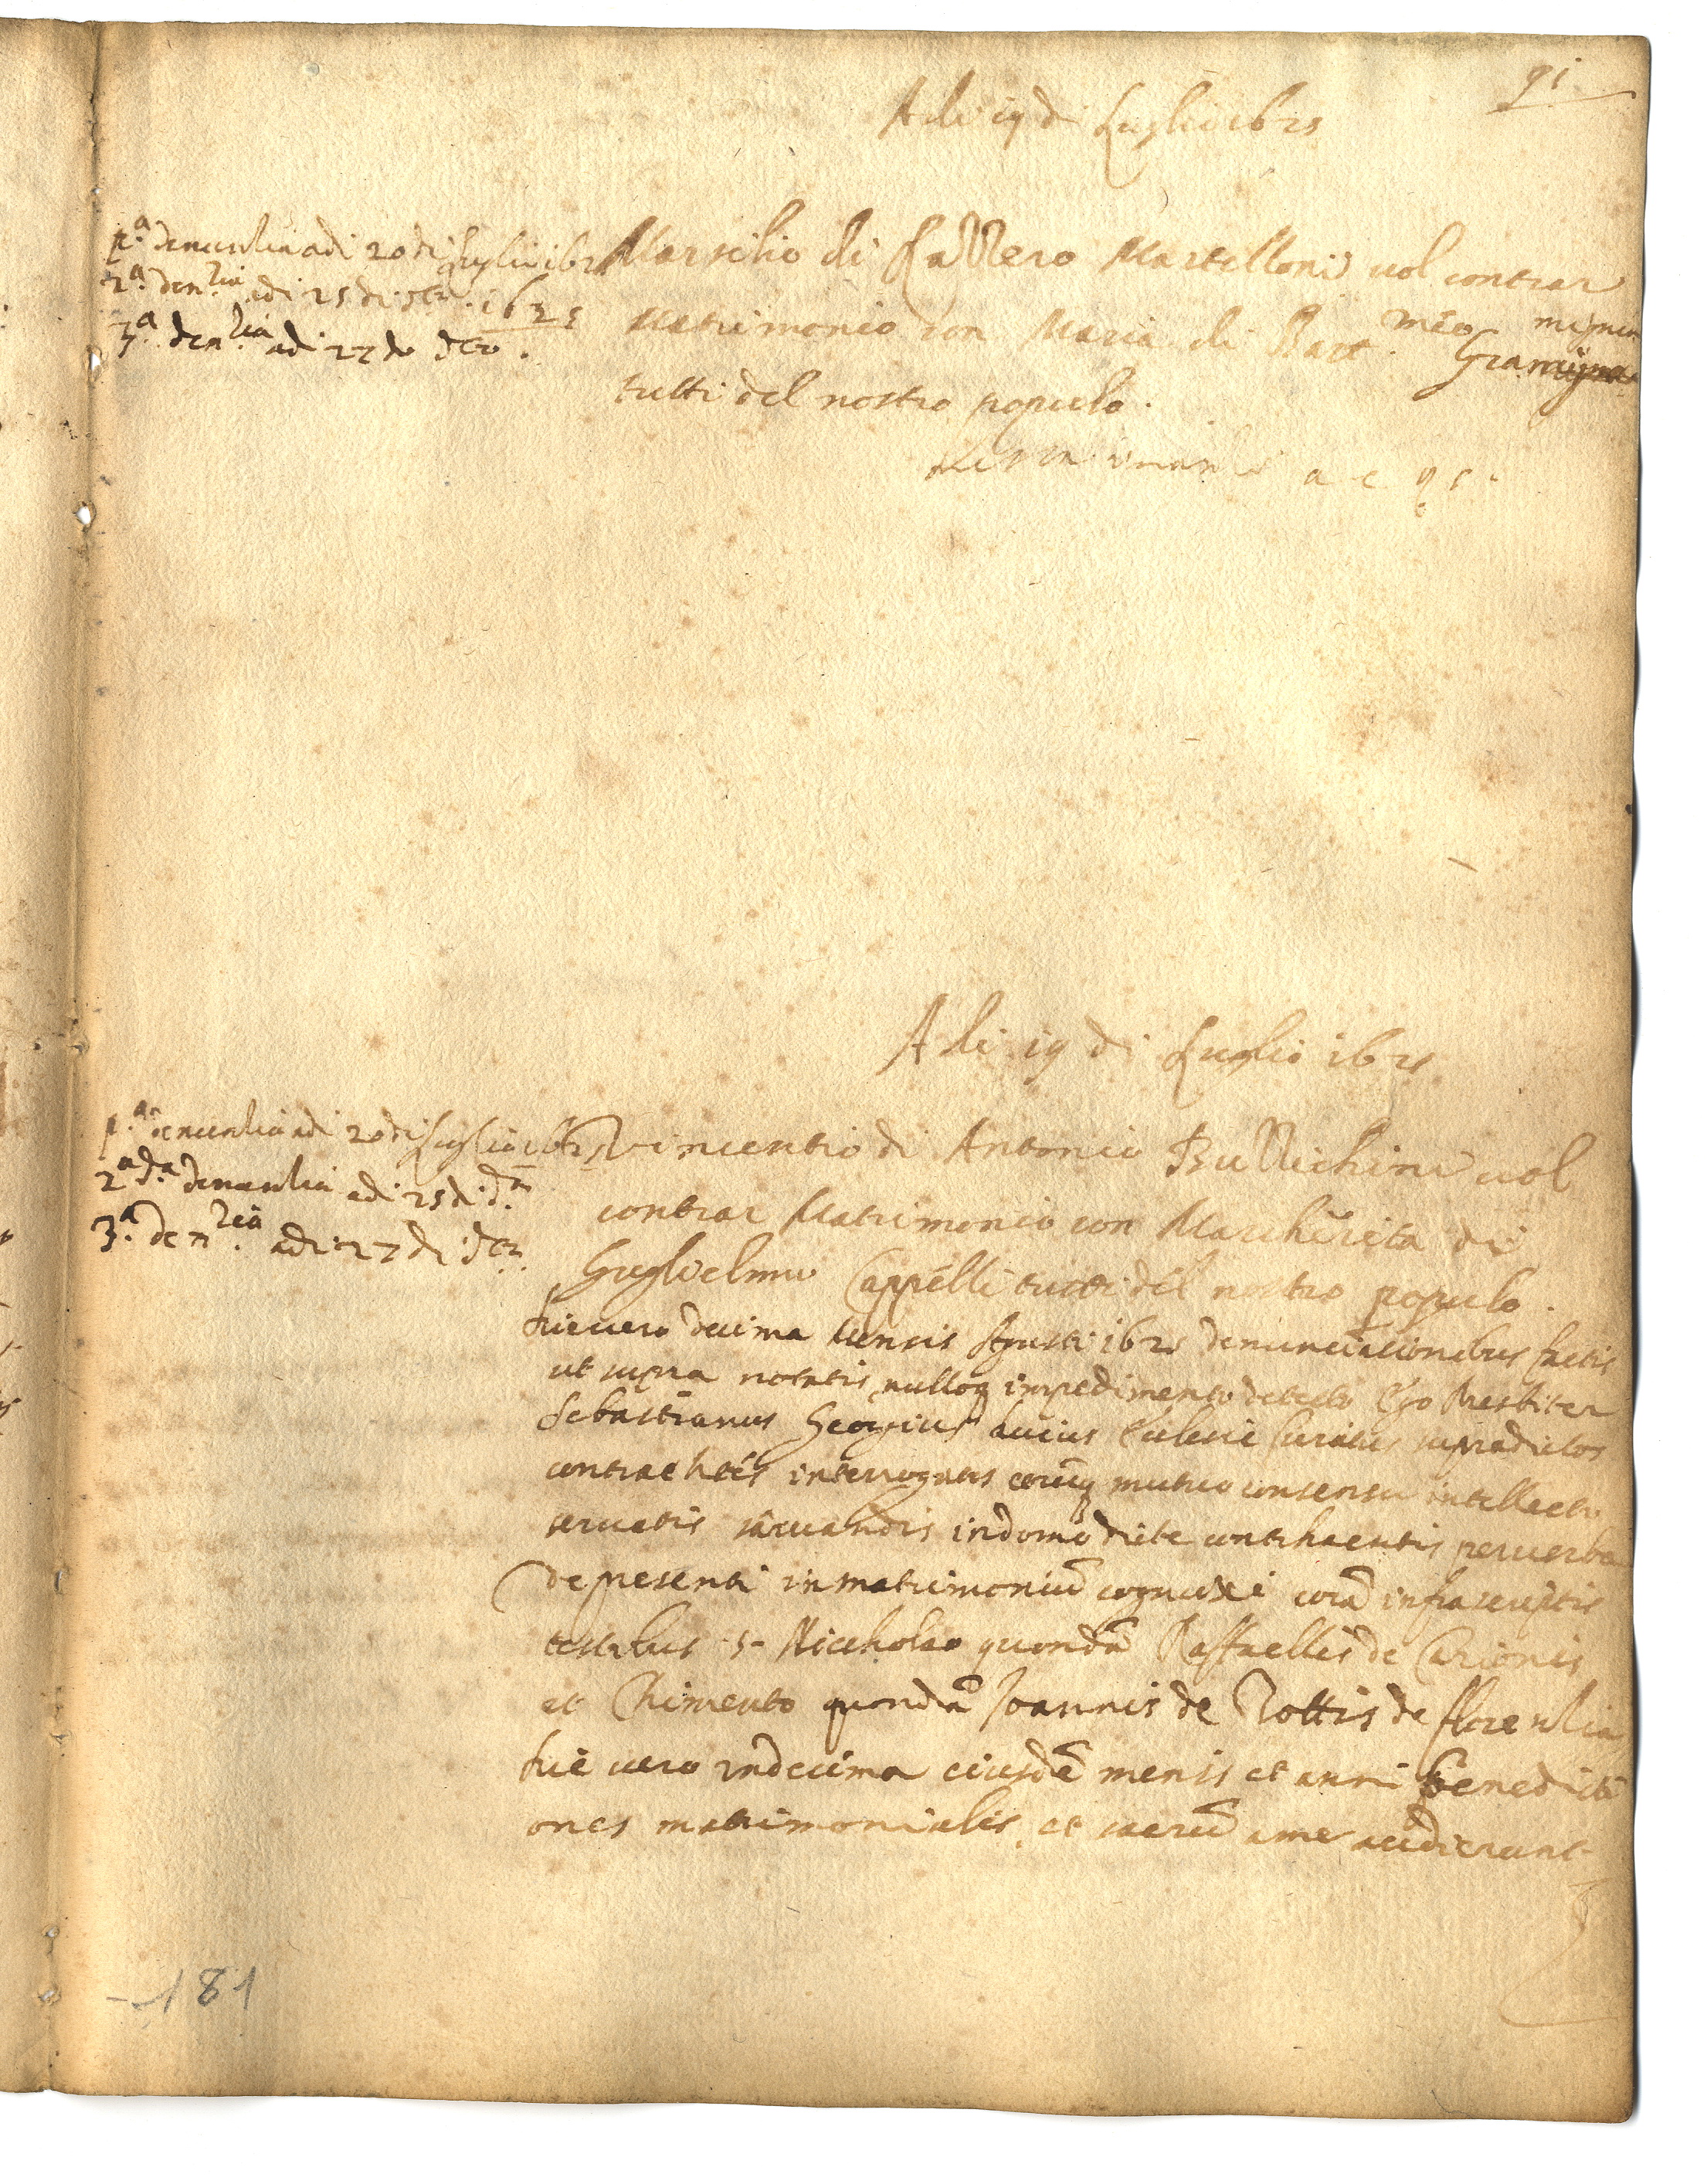 91
A di 19 di Luglio 1625
pᵃ. denuntia adi 20 di Luglio 1625
2ᵃ. denᵗⁱᵃ adi 25 di dᵗᵒ. 1625
3ᵃ. denᵗⁱᵃ adi 27 di dᵗᵒ.
Marsilio di Martelloni vol contrar
Matrimonio con Maria di Bart. meo
tutti del nostro populo.
a c 95.
A di 19 di Luglio 1625
pᵃ. denuntia adi 20 di Luglio 1625
2ᵃ dᵃ denuntia adi 25 di dᵒ
3ᵃ. denᵗⁱᵃ adi 27 di dᵗᵒ.
Vincentio di Antonio vol
contrar Matrimonio con Margherita di
Guglielmo Cappelli tutti del nostro populo.
Die vero decima Mensis Agusti 1625 denunciationibus factis
ut supra notatis nulloq impedimento detecto Ego Presbiter
Sebastianus Georgius huius Eclesie Curatus supradictos
interrogatis mutuo consensu intellecto
servatis servandis in domo dicte contrhaentis per verba
de presenti in matrimoniū corā infrascriptis
testibus s. Niccholao quondā Raffaellis de
et Chimento quondā Joannis de Tottis de florentia
Die vero undecima eiusdē mensis et anni benedicti
ones matrimonialis et sacrū a me audierunt
181